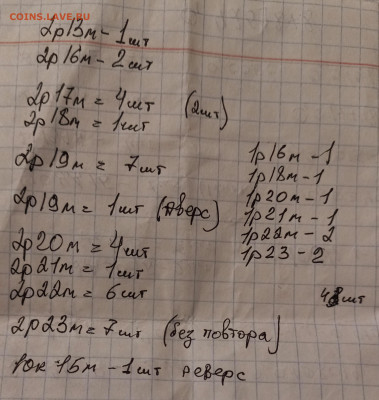 COINS.LAVE.RU
2р13м - 1шт
2р16м - 2шт
2р17м = 4шт (2шт)
2р18м = 1шт
2р19м = 7шт
2р19м = 1шт (Аверс)
2р20м = 4шт
2р21м = 1шт
2р22м = 6шт
2р23м = 7шт (без повтора)
10к 15м - 1шт реверс
1р16м - 1
1р18м - 1
1р20м - 1
1р21м - 1
1р22м - 2
1р23 - 2